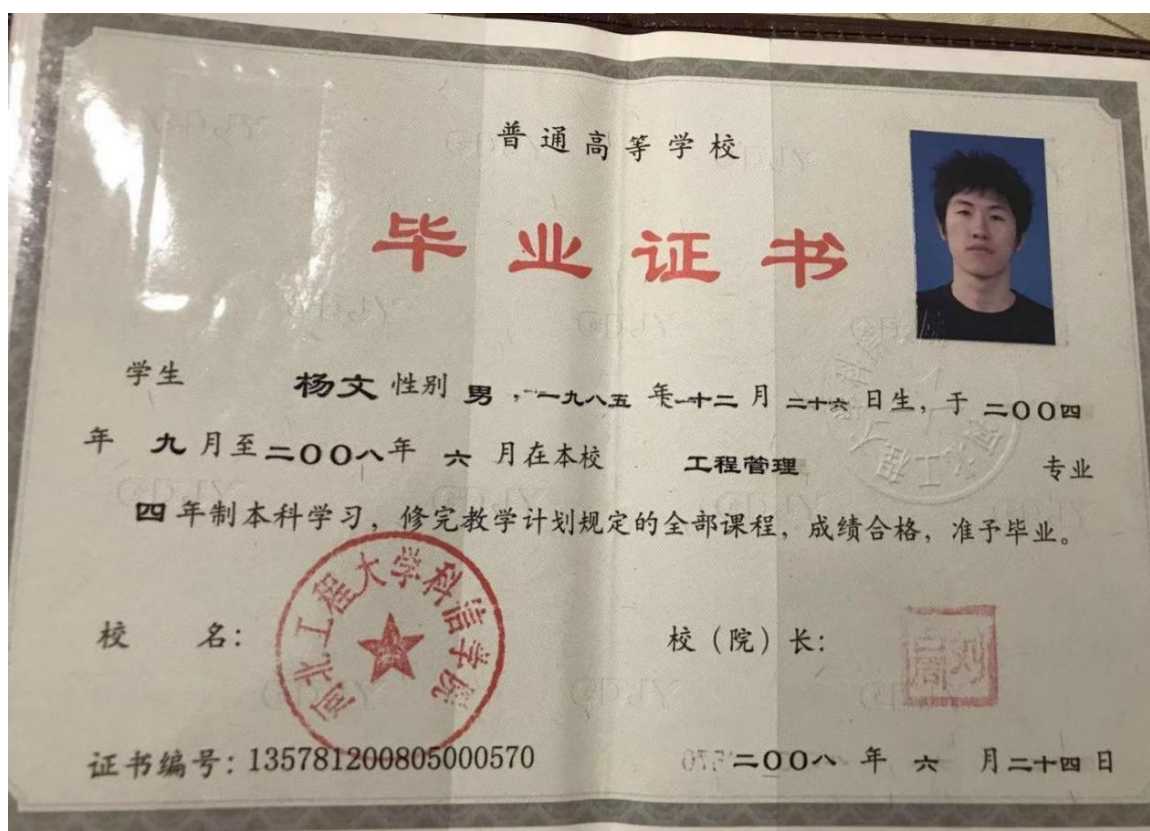 普通高等学校
毕业证书
学生 杨文 性别 男，一九八五 年 十二 月 二十六 日生，于 二〇〇四
年 九 月至 二〇〇八 年 六 月在本校 工程管理 专业
四 年制本科学习，修完教学计划规定的全部课程，成绩合格，准予毕业。
河北工程大学科信学院
校 名：
校（院）长：
证书编号：135781200805000570
二〇〇八 年 六 月 二十四 日